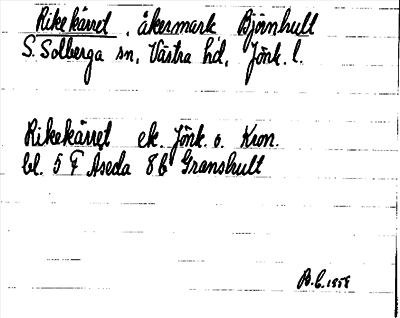 Rikekärret, åkermark Björnhult
S. Solberga sn, Västra hd, Jönk. l.
Rikekärret ek. Jönk. o. Kron.
bl. 5 F Åseda 8 b Granshult
B.C. 1958